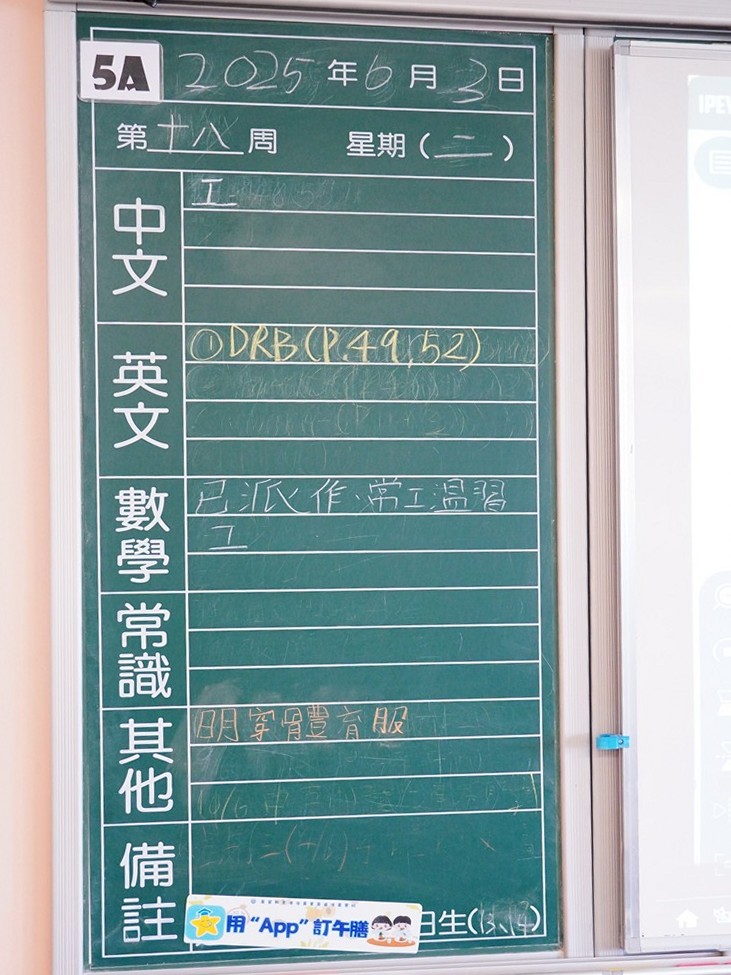 5A 2025年6月3日
第十八周 星期(二)
中文
工
英文
①DRB(P.49,52)
數學
已派作、常工溫習
工
常識
其他
明穿體育服
備註
用“App”訂午膳
日生(13,14)
IPEV